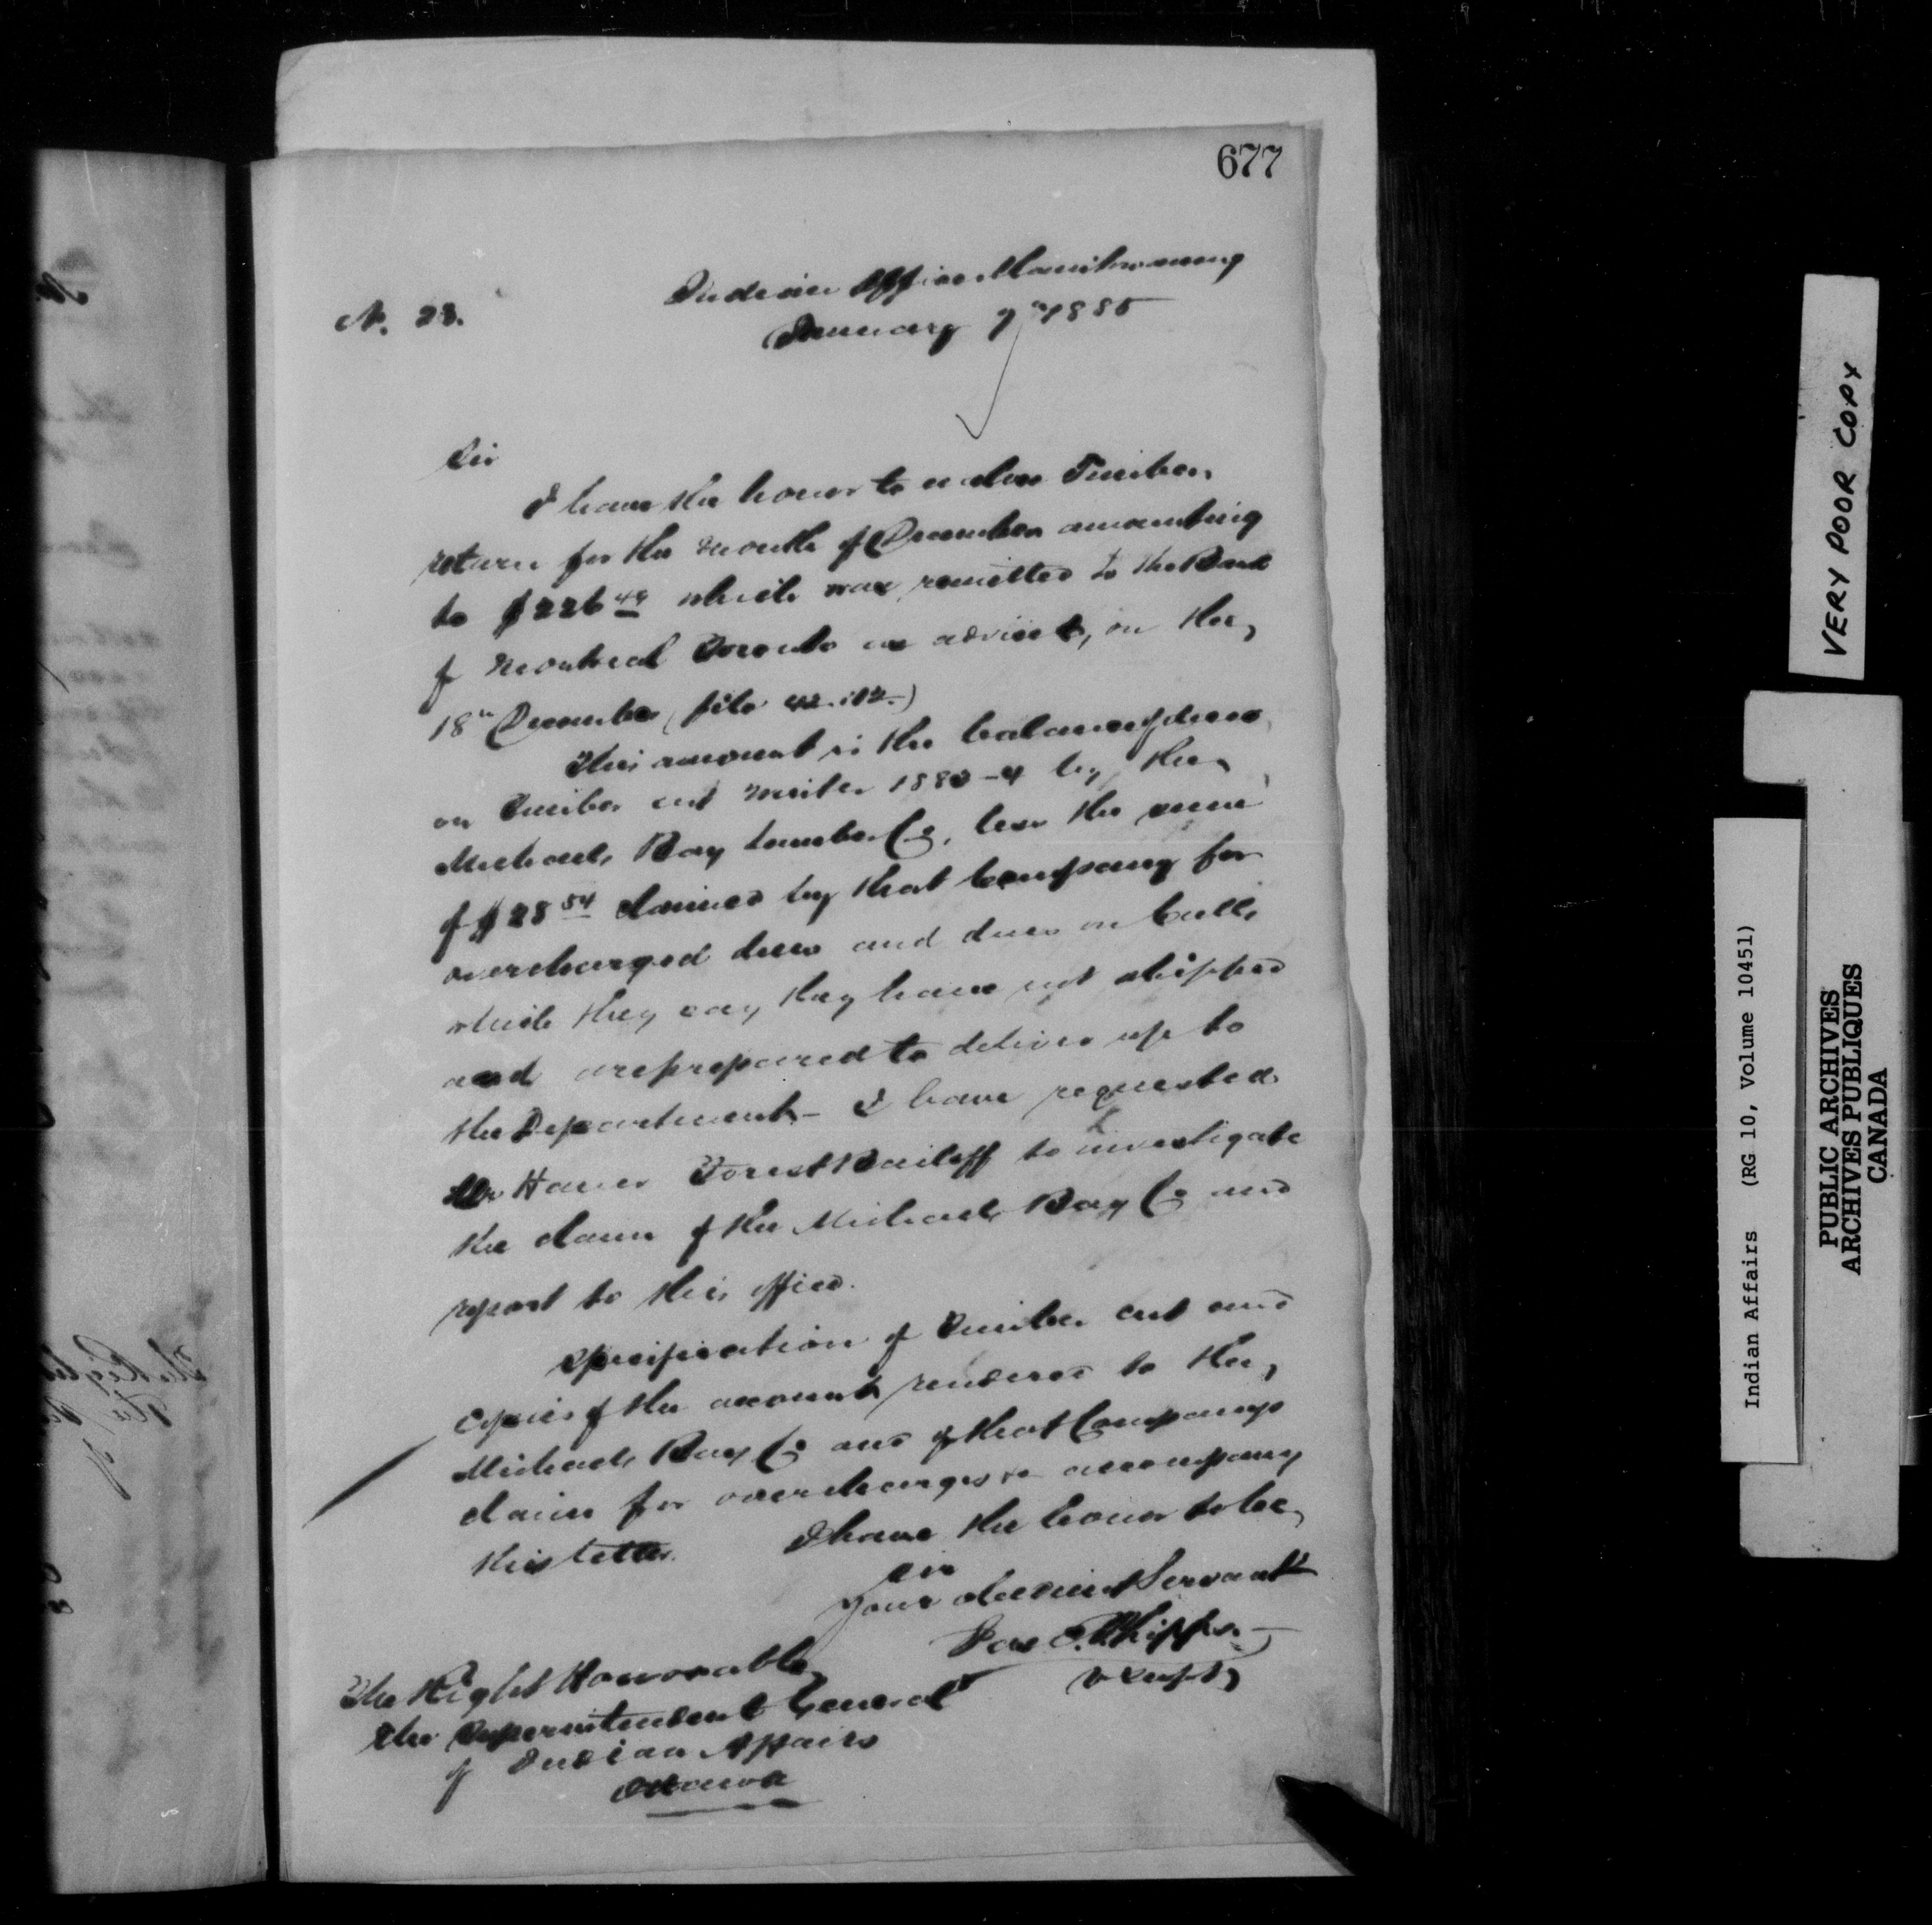 677
Indian Office Manitowaning
No. 23.
January 7th 1885
Sir
I have the honor to enclose Timber
return for the month of December amounting
to $226 49 which was remitted to the Bank
of Montreal Toronto as advised, on the
18th December (file
This amount is the balance of dues
on Timber cut winter 1883-4 by the
Michaels Bay Lumber Co, less the sum
of $28 54 claimed by that Company for
overcharged dues and dues on culls
which they say they have not shipped
and are prepared to deliver up to
the Department - I have requested
Mr Forest Bailiff to investigate
the claim of the Michaels Bay Co and
report to this office.
Specification of Timber cut and
copies of the accounts rendered to the
Michaels Bay Co and of that Companys
claim for overcharges &c accompany
this letter.
I have the honor to be
Sir
Your obedient Servant
Jas C. Phipps
V Supt
The Right Honorable
The Superintendent General
of Indian Affairs
Ottawa
VERY POOR COPY
Indian Affairs (RG 10, Volume 10451)
PUBLIC ARCHIVES
ARCHIVES PUBLIQUES
CANADA